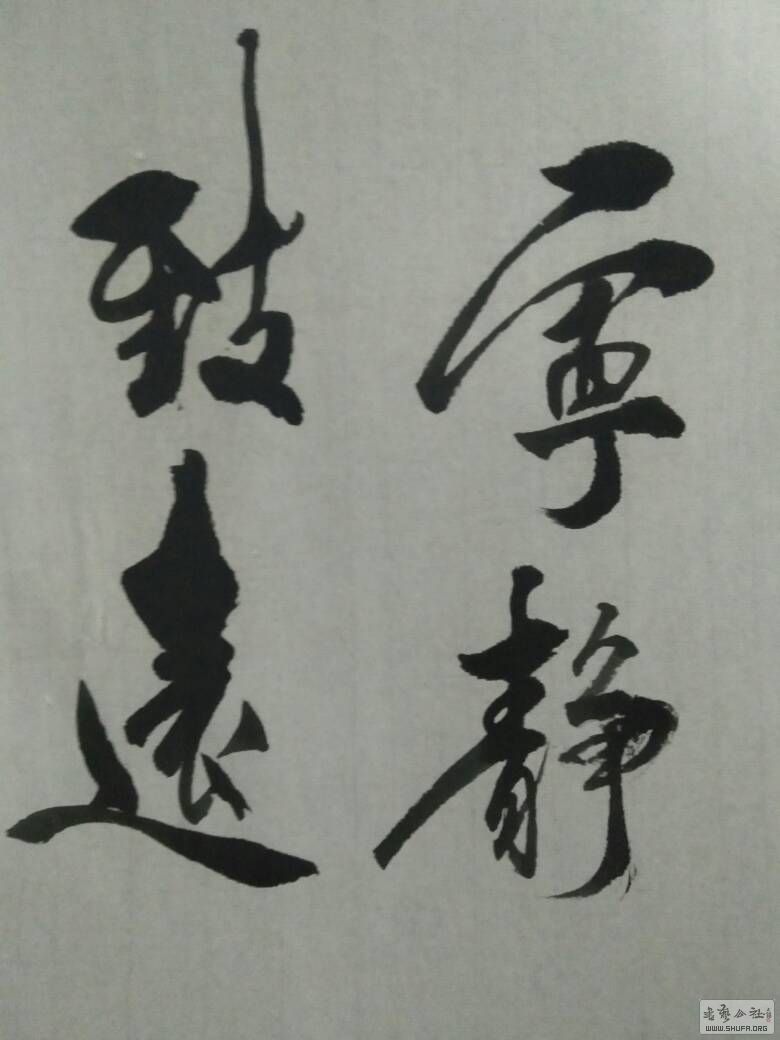 寧靜
致遠
书艺公社
WWW.SHUFA.ORG